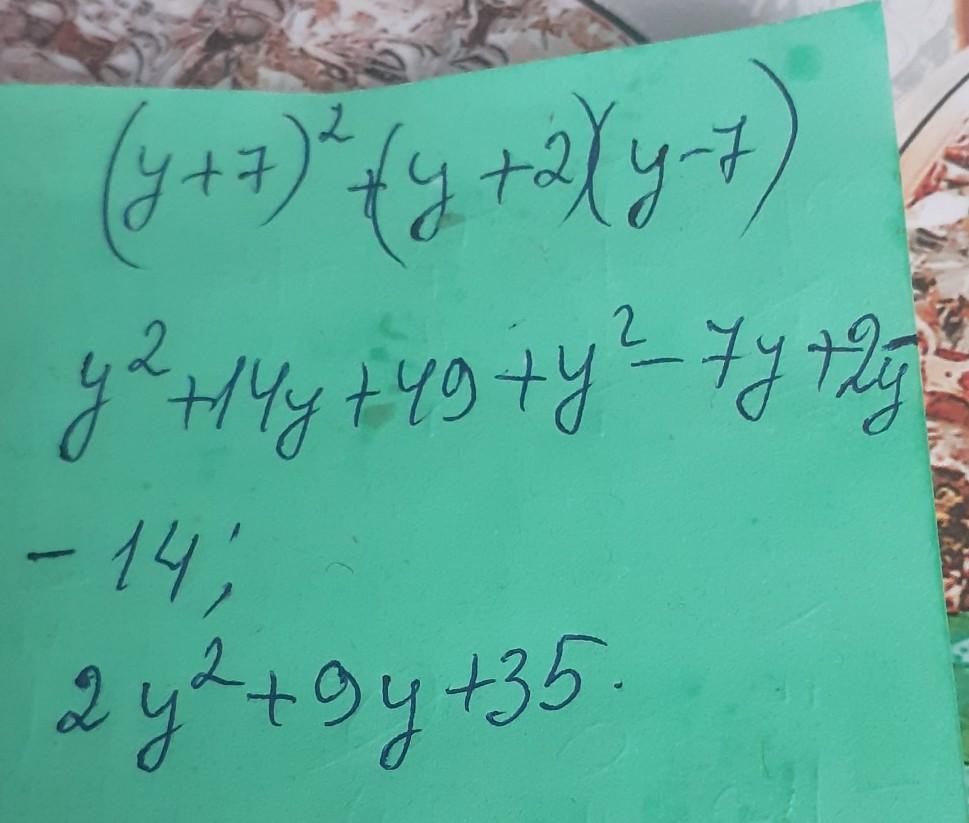 (y+7)²+(y+2)(y-7)
y²+14y+49+y²-7y+2y-
-14;
2y²+9y+35.